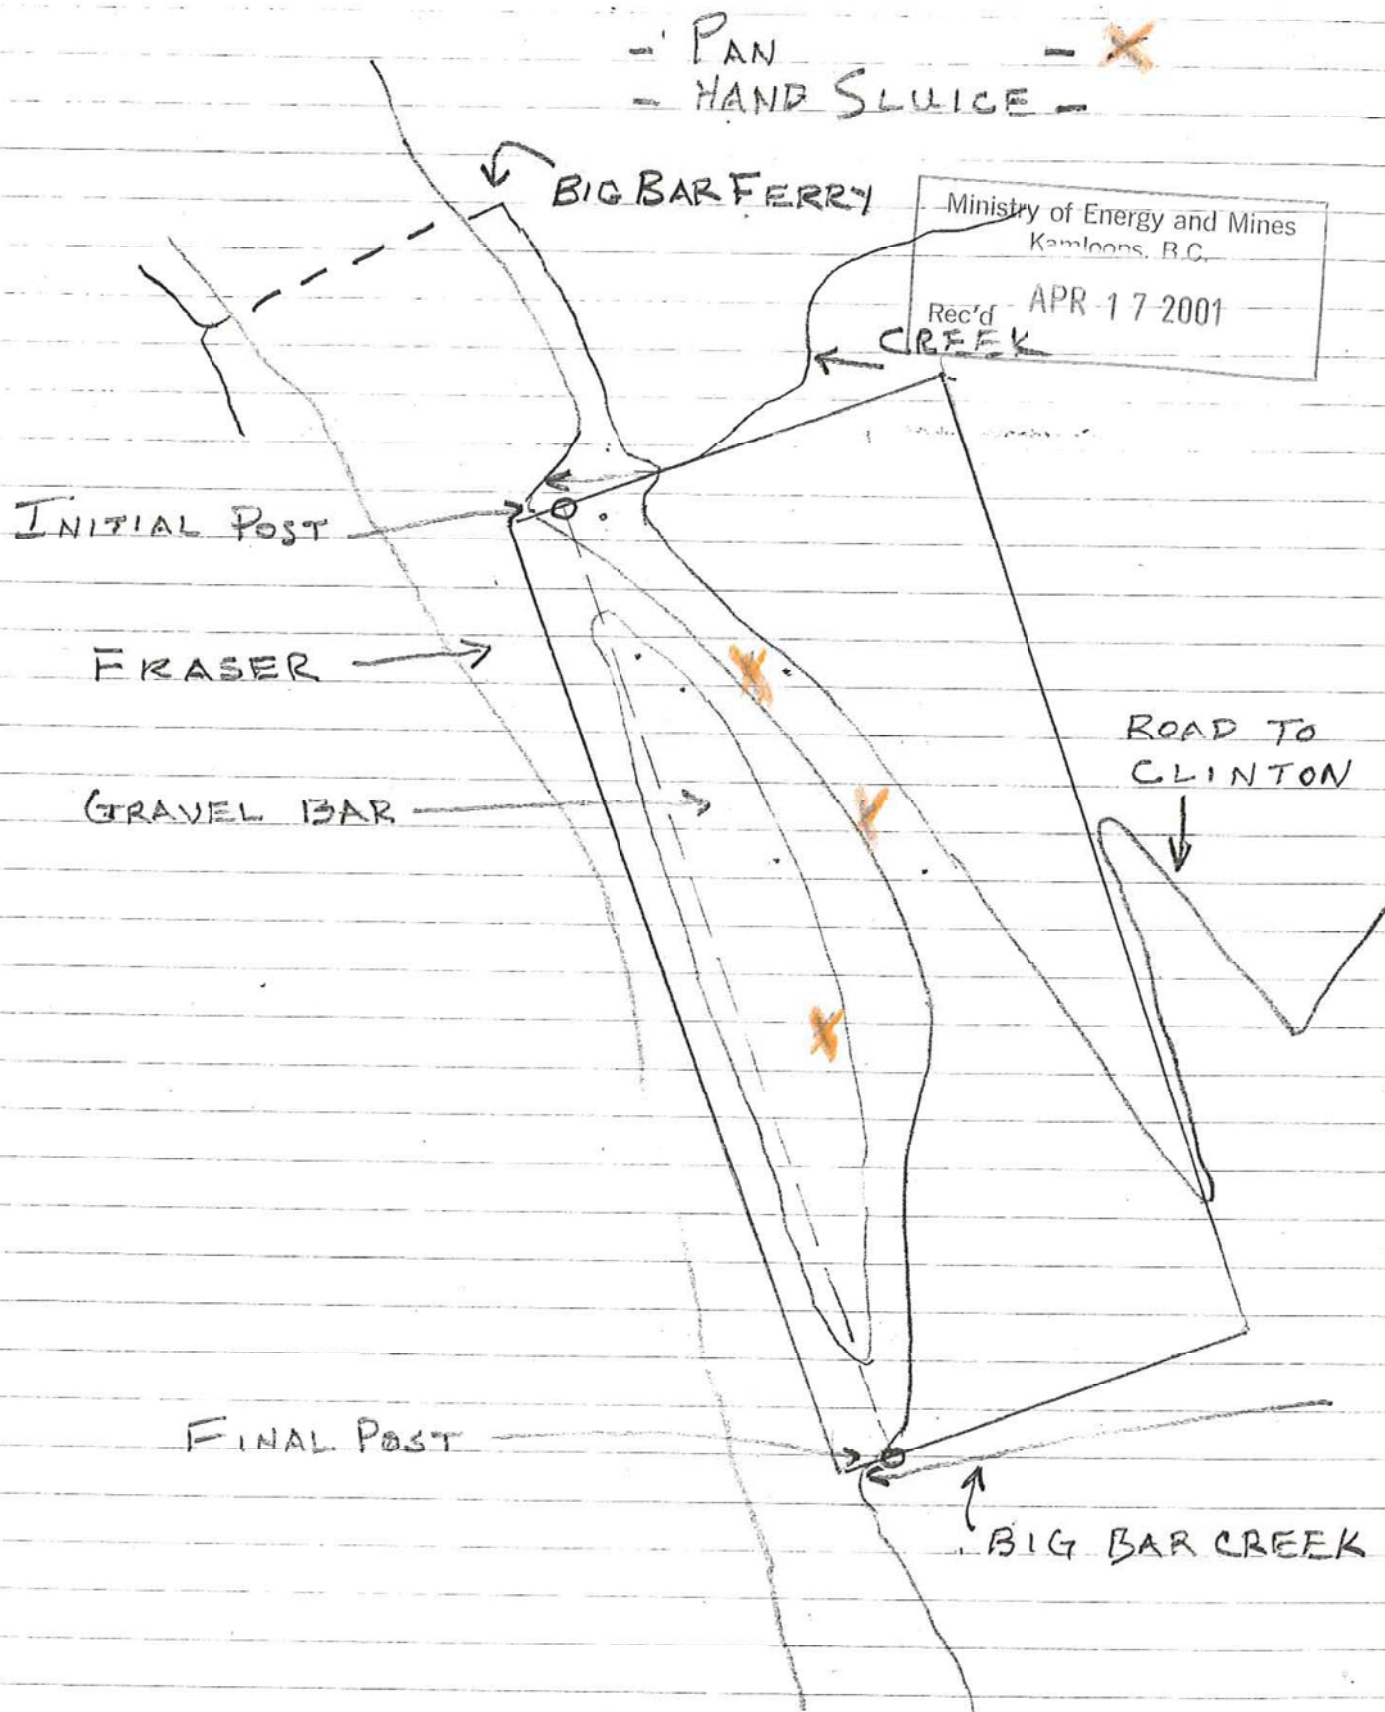 - PAN - X
- HAND SLUICE -
BIG BAR FERRY
Ministry of Energy and Mines
Kamloops, B.C.
Rec'd APR 17 2001
CREEK
INITIAL POST
FRASER
ROAD TO
CLINTON
GRAVEL BAR
FINAL POST
BIG BAR CREEK